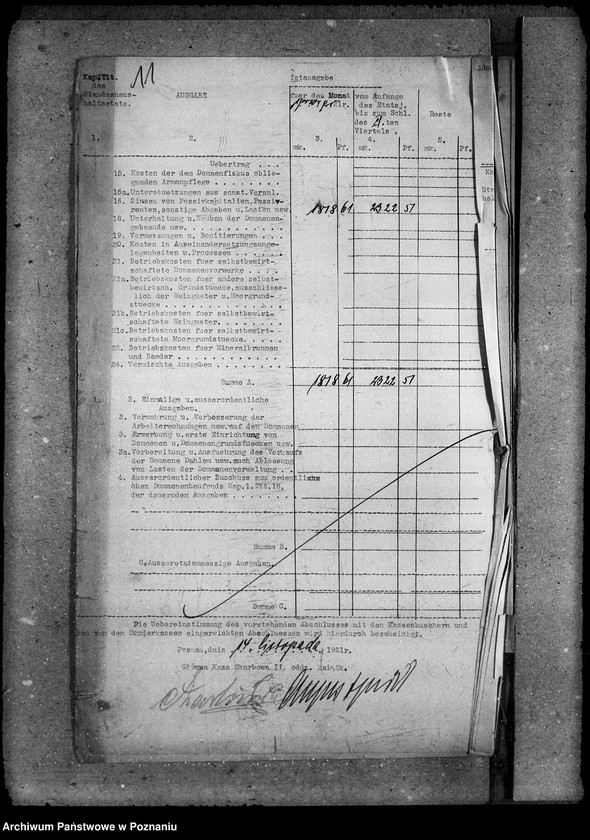 Kap.Tit.
des
Standeshaus-
haltsetats.
11
AUSGABE
Istausgabe
fuer den Monat
vom Anfange
des Etatsj.
bis zum Schl.
des 2.ten
Viertels.
Reste
1. 2. 3. 4. 5.
mk. Pf. mk. Pf. mk. Pf.
Uebertrag . . .
15. Kosten der dem Domaenfiskus oblie-
genden Armenpflege . . . . . . .
15a. Unterstuetzungen aus sonst. Veranl.
16. Zinsen von Passivkapitalien, Passiv-
renten, sonstige Abgaben u. Lasten usw. 1878 61 2322 51
18. Unterhaltung u. Neubau der Domaenen-
gebaeude usw. . . . . . . . . .
19. Vermessungen u. Bonitierungen . . .
20. Kosten in Auseinandersetzungsange-
legenheiten u. Prozessen . . . . .
21. Betriebskosten fuer selbstbewirt-
schaftete Domaenenvorwerke . . . .
21a. Betriebskosten fuer andere selbst-
bewirtsch. Grundstuecke, ausschliess-
lich der Weingueter u. Moorgrund-
stuecke . . . . . . . . . . . .
21b. Betriebskosten fuer selbstbewirt-
schaftete Weingueter. . . . . . .
21c. Betriebskosten fuer selbstbewirt-
schaftete Moorgrundstuecke. . . . .
22. Betriebskosten fuer Mineralbrunnen
und Baeder . . . . . . . . . . .
24. Vermischte Ausgaben . . . . . . .
Summe A. 1878 61 2322 51
B. Einmalige u. ausserordentliche
Ausgaben.
2. Vermehrung u. Verbesserung der
Arbeiterwohnungen usw. auf den Domaenen
3. Erwerbung u. erste Einrichtung von
Domaenen u. Domaenengrundstuecken usw.
3a. Vorbereitung u. Ausfuehrung des Verkaufs
der Domaene Dahlem usw. auch Abloesung
von Lasten der Domaenenverwaltung . .
4. Ausserordentlicher Zuschuss zum ordentlichen
Domaenenbaufonds Kap.1. Tit.18,
der dauernden Ausgaben . . . . . . . .
Summe B.
C. Ausseretatsmaessige Ausgaben.
Summe C.
Die Uebereinstimmung des vorstehenden Abschlusses mit den Kassenbuechern und
den von den Sonderkassen eingereichten Abschluessen wird hierdurch bescheinigt.
Posen, den 14. listopada, 1921r.
Główna Kasa Skarbowa II. oddz. książk.
Archiwum Państwowe w Poznaniu